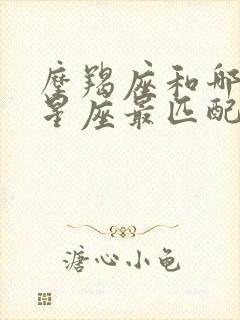 摩羯座和哪
星座最匹配
溏心小龟